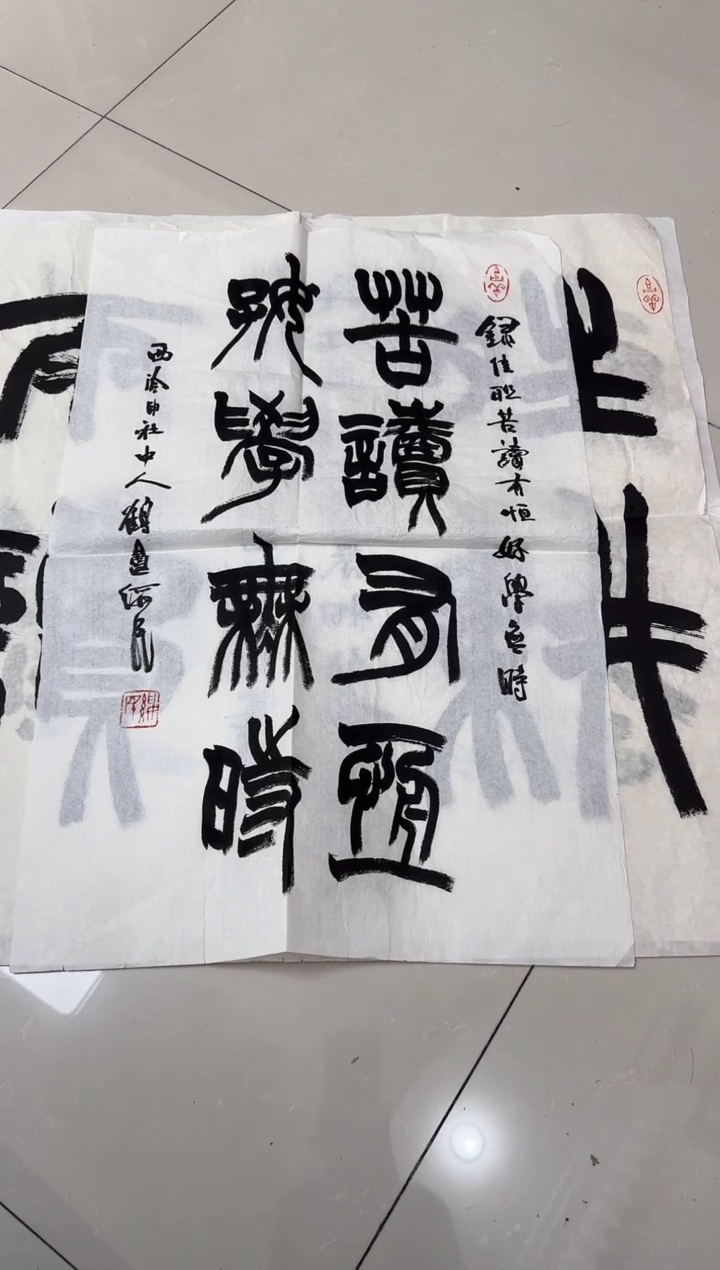 錄佳联苦讀有恒好學無時
苦讀有恆
好學無時
西泠印社中人鶴